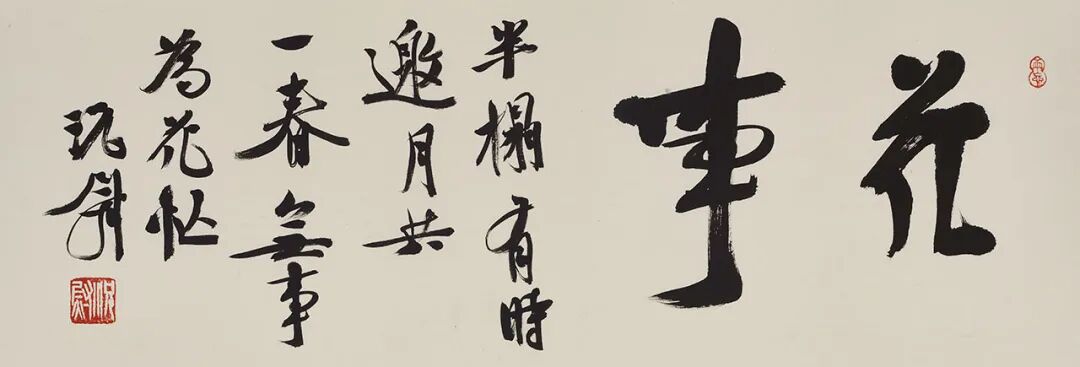 花事
半榻有時
邀月共
一春無事
為花忙
況尉
況尉